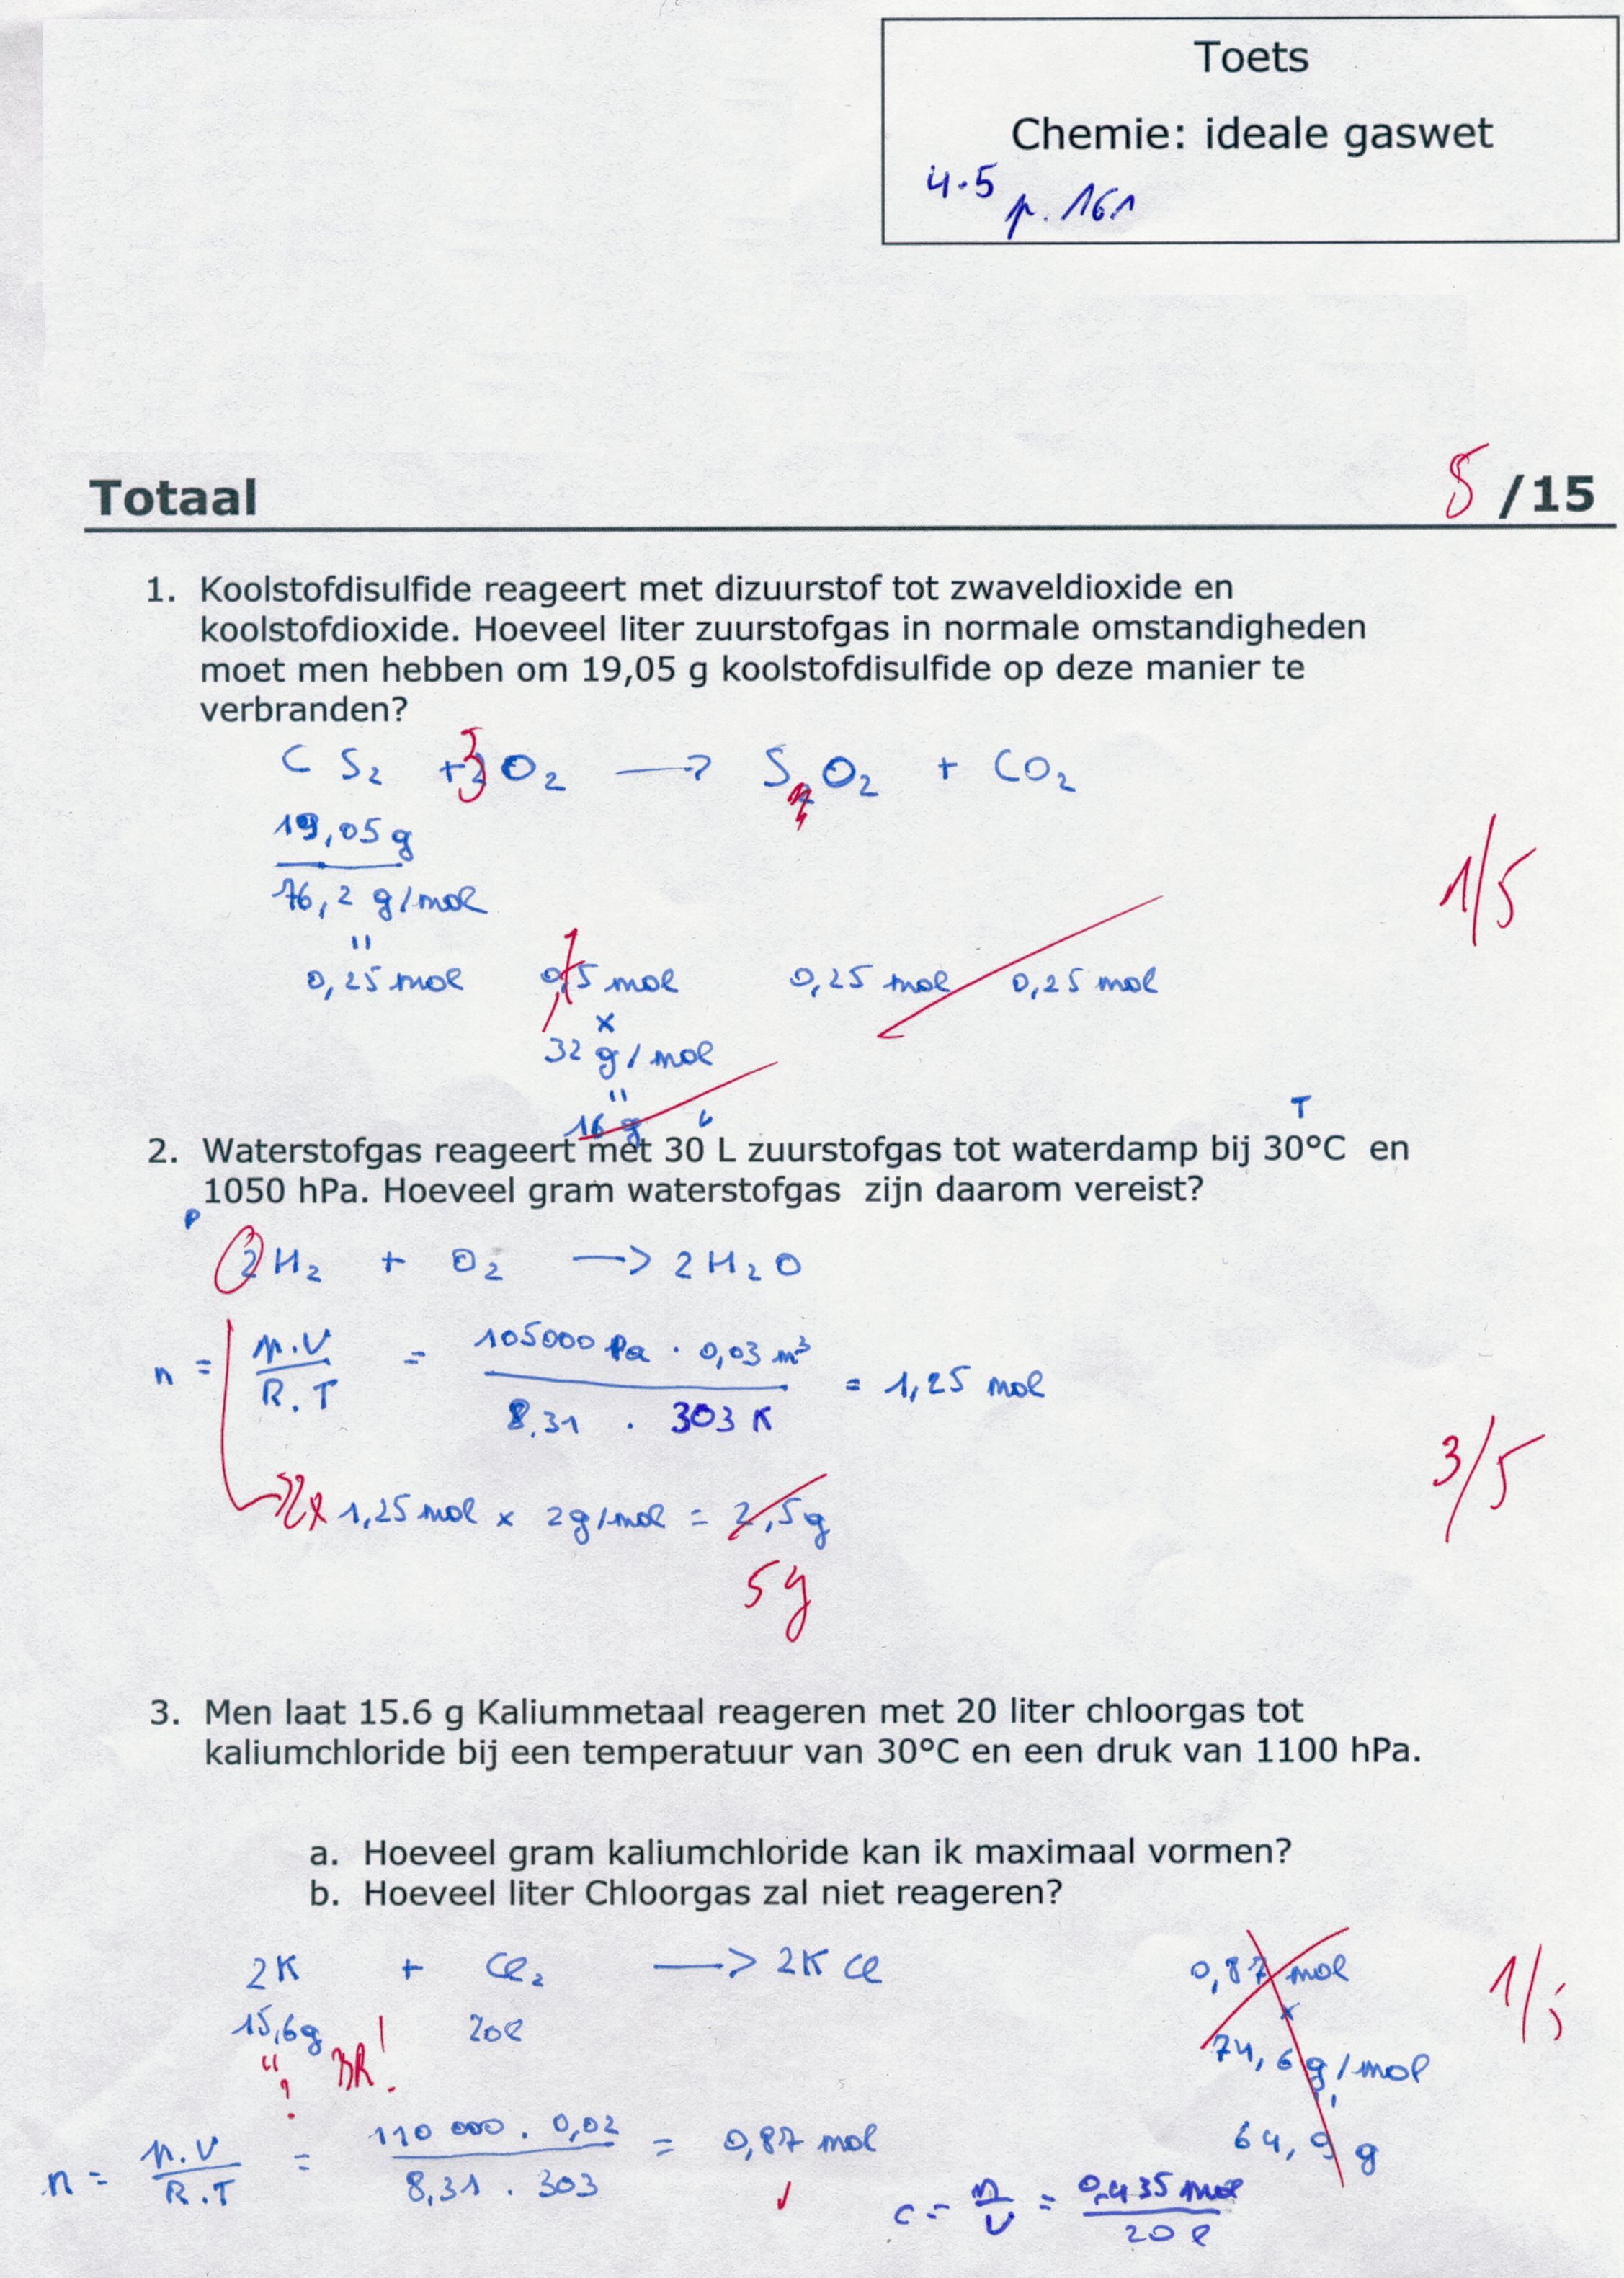 Toets
Chemie: ideale gaswet
4.5 p. 161
Totaal 5 /15
1. Koolstofdisulfide reageert met dizuurstof tot zwaveldioxide en
koolstofdioxide. Hoeveel liter zuurstofgas in normale omstandigheden
moet men hebben om 19,05 g koolstofdisulfide op deze manier te
verbranden?
C S₂ + 3 O₂ → S₂O₂ + CO₂
19,05 g
76,2 g/mol
1/5
"
0,25 mol 0,5 mol 0,25 mol 0,25 mol
x
32 g/mol
"
16 g
T
2. Waterstofgas reageert met 30 L zuurstofgas tot waterdamp bij 30°C en
1050 hPa. Hoeveel gram waterstofgas zijn daarom vereist?
P
2H₂ + O₂ → 2H₂O
n = p.V / R.T = 105000 Pa . 0,03 m³ / 8,31 . 303 K = 1,25 mol
3/5
2x 1,25 mol x 2g/mol = 2,5g
5g
3. Men laat 15.6 g Kaliummetaal reageren met 20 liter chloorgas tot
kaliumchloride bij een temperatuur van 30°C en een druk van 1100 hPa.
a. Hoeveel gram kaliumchloride kan ik maximaal vormen?
b. Hoeveel liter Chloorgas zal niet reageren?
2K + Cl₂ → 2KCl 0,87 mol
15,6g 20l x
" BR! 74,6 g/mol
? "
64,9 g
n = p.V / R.T = 110 000 . 0,02 / 8,31 . 303 = 0,87 mol
c = n / V = 0,435 mol / 20 l